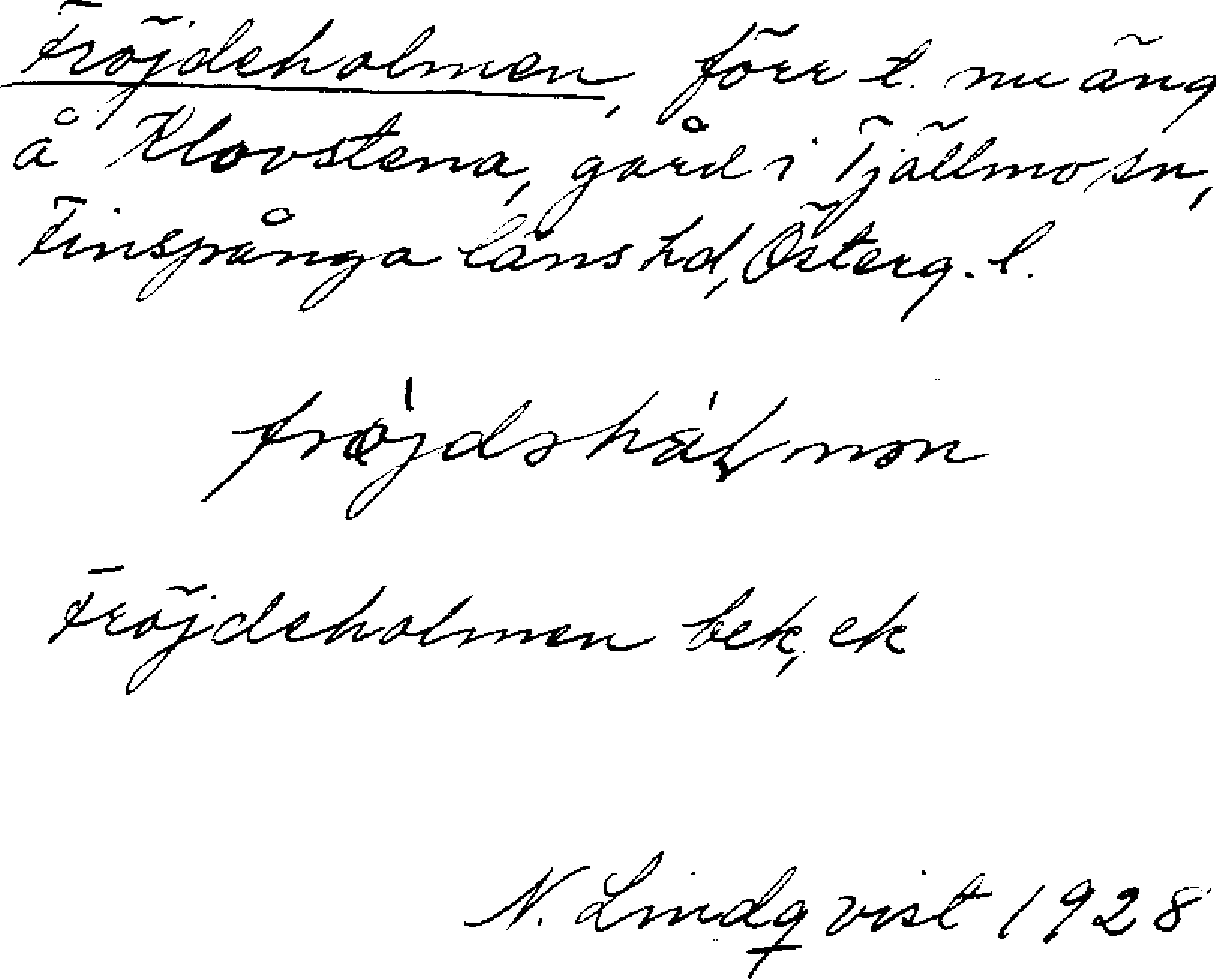 Fröjdeholmen, förr t. nu äng
å Klovstena, gård i Tjällmo sn,
Finspånga läns hd, Österg. l.
Fröjdeholmen bek, ek
N. Lindqvist 1928